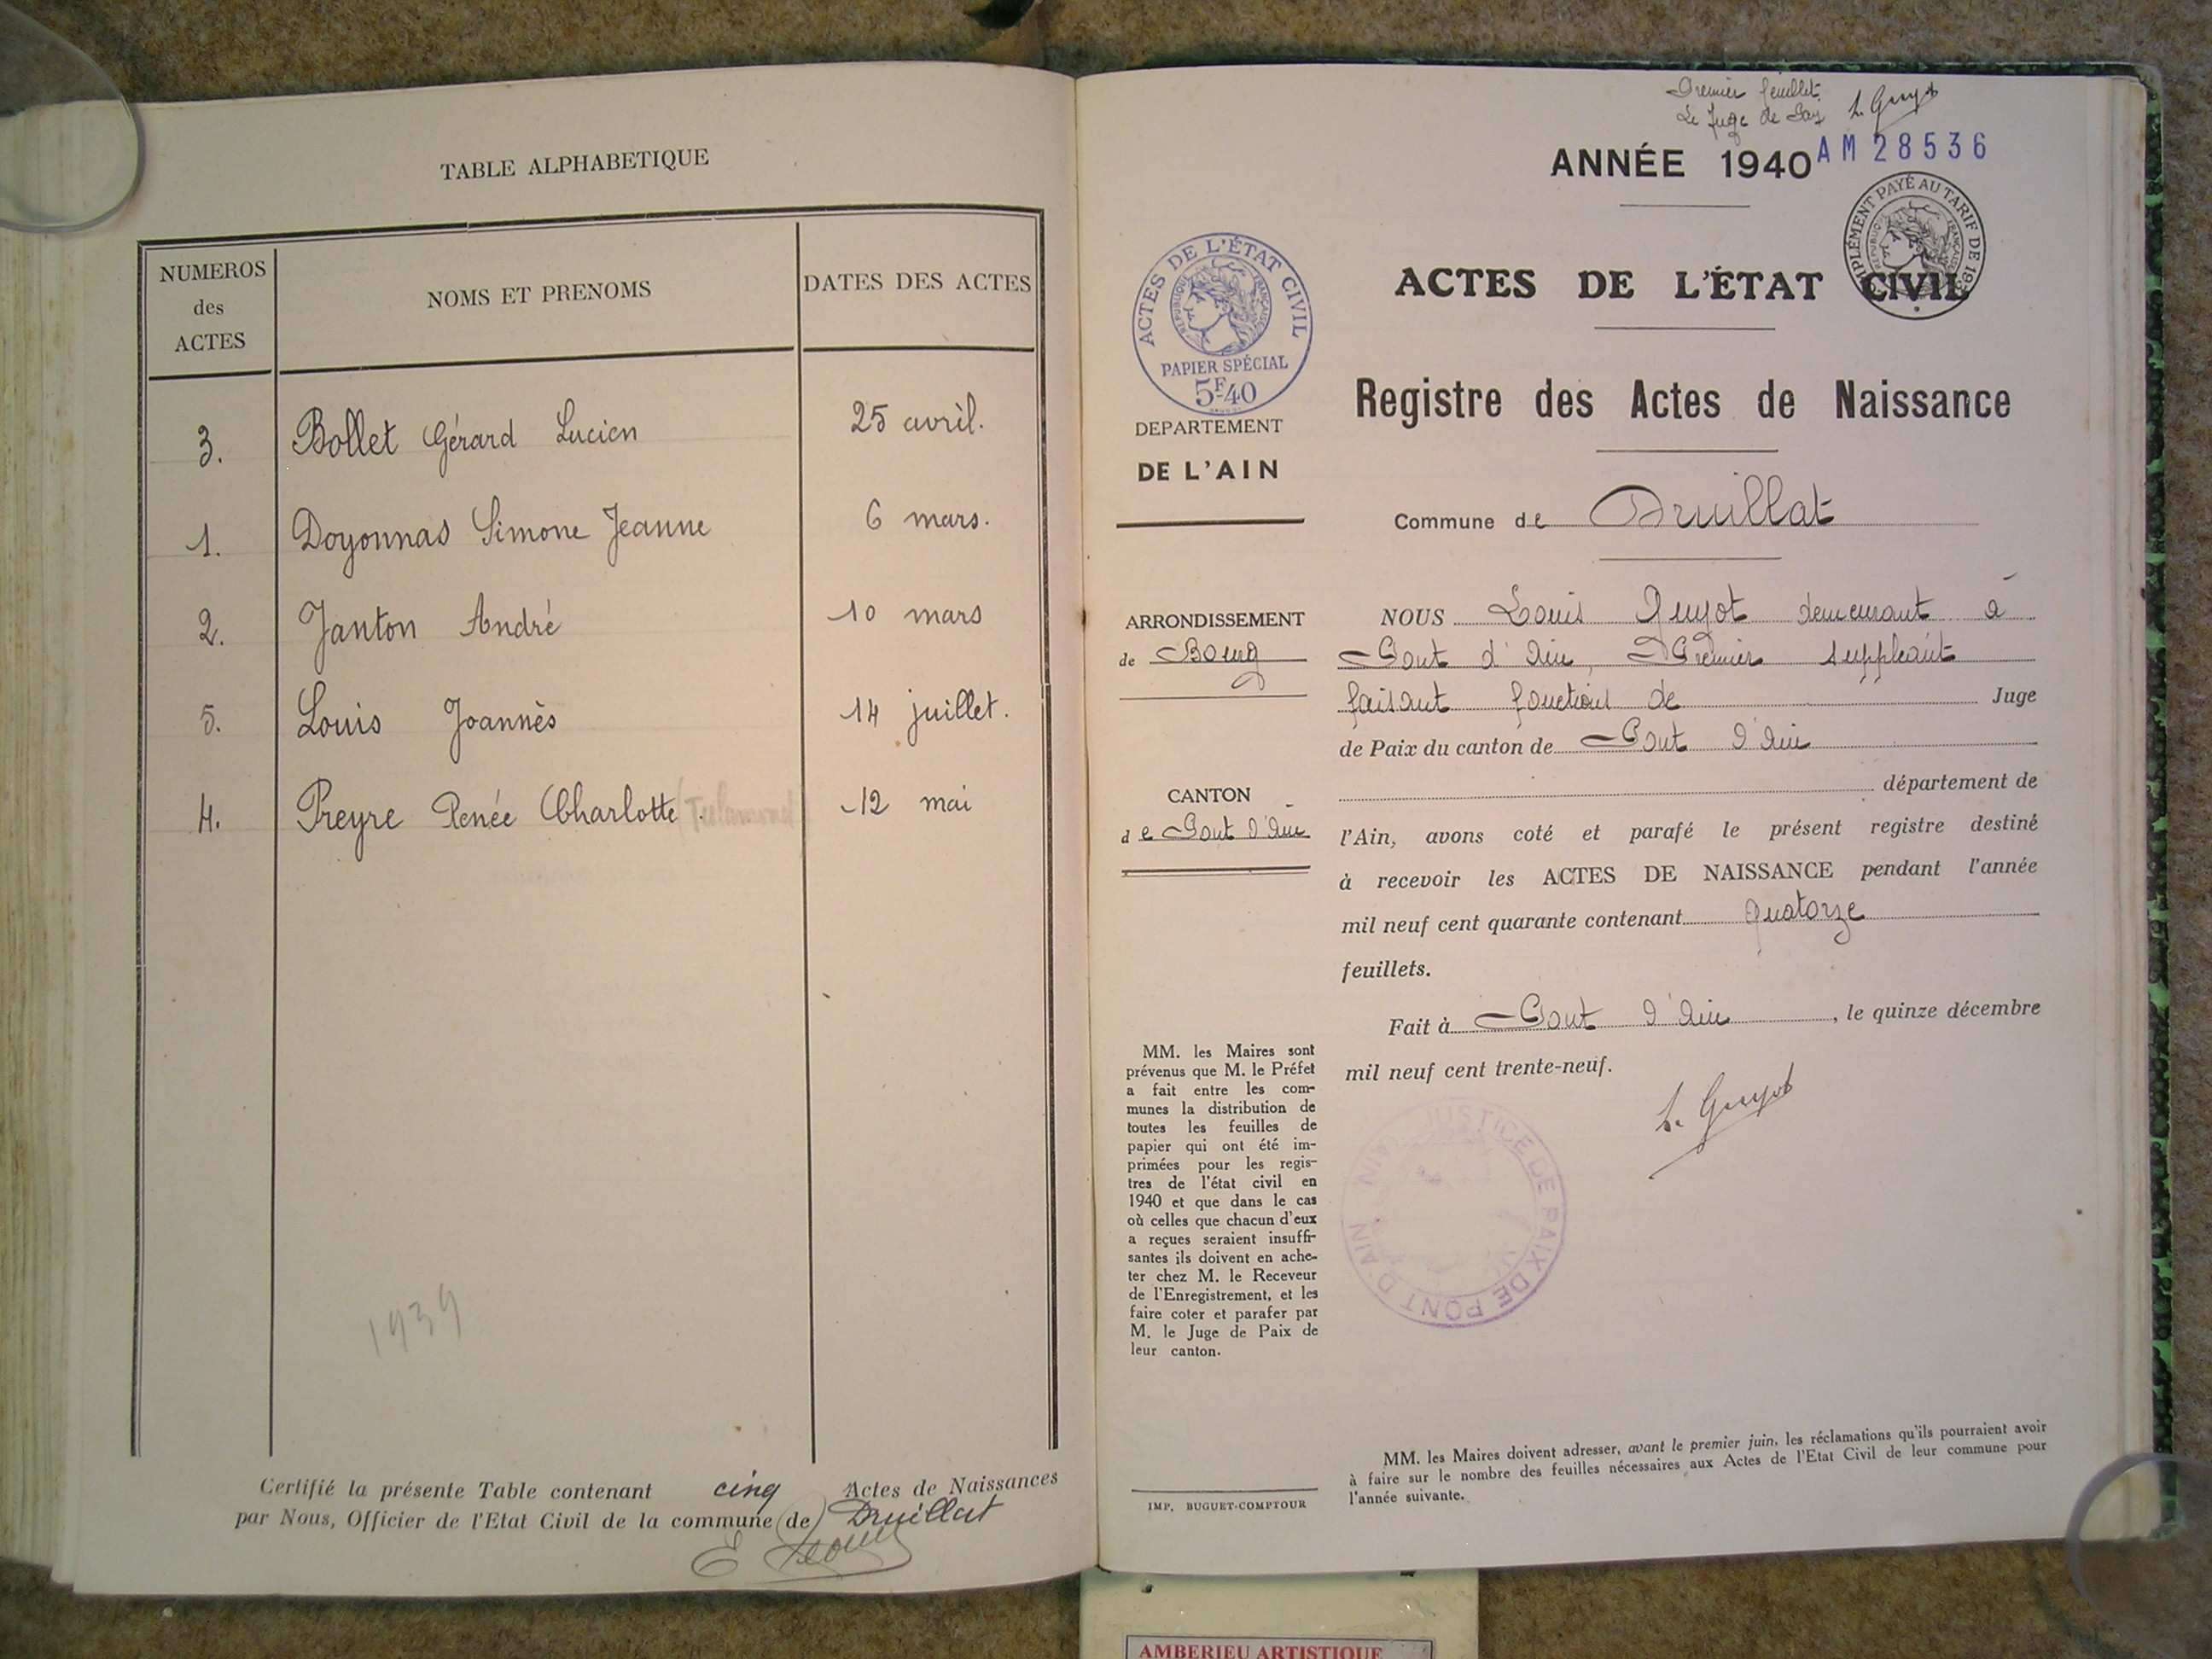 TABLE ALPHABETIQUE
NUMEROS des ACTES NOMS ET PRENOMS DATES DES ACTES
3. Bollet Gérard Lucien 25 avril.
1. Doyonnas Simone Jeanne 6 mars.
2. Janton André 10 mars
5. Louis Joannès 14 juillet.
4. Preyre Renée Charlotte 12 mai
1939
Certifié la présente Table contenant cinq Actes de Naissances
par Nous, Officier de l'Etat Civil de la commune (de) Druillat
Premier feuillet.
Le Juge de Paix L. Guyot
ANNÉE 1940 AM 28536
SUPPLÉMENT PAYÉ AU TARIF DE
RÉPUBLIQUE FRANÇAISE
ACTES DE L'ÉTAT CIVIL
RÉPUBLIQUE FRANÇAISE
PAPIER SPÉCIAL
5F40
DEPARTEMENT
DE L'AIN
ARRONDISSEMENT
de Bourg
CANTON
de Pont d'Ain
MM. les Maires sont
prévenus que M. le Préfet
a fait entre les com-
munes la distribution de
toutes les feuilles de
papier qui ont été im-
primées pour les regis-
tres de l'état civil en
1940 et que dans le cas
où celles que chacun d'eux
a reçues seraient insuffi-
santes ils doivent en ache-
ter chez M. le Receveur
de l'Enregistrement, et les
faire coter et parafer par
M. le Juge de Paix de
leur canton.
IMP. BUGUET-COMPTOUR
ACTES DE L'ÉTAT CIVIL
Registre des Actes de Naissance
Commune de Druillat
NOUS Louis Guyot demeurant à
Pont d'Ain, Premier suppléant
faisant fonctions de Juge
de Paix du canton de Pont d'Ain
département de
l'Ain, avons coté et parafé le présent registre destiné
à recevoir les ACTES DE NAISSANCE pendant l'année
mil neuf cent quarante contenant quatorze
feuillets.
Fait à Pont d'Ain, le quinze décembre
mil neuf cent trente-neuf.
L. Guyot
JUSTICE DE PAIX DE PONT D'AIN
MM. les Maires doivent adresser, avant le premier juin, les réclamations qu'ils pourraient avoir
à faire sur le nombre des feuilles nécessaires aux Actes de l'Etat Civil de leur commune pour
l'année suivante.
AMBERIEU ARTISTIQUE